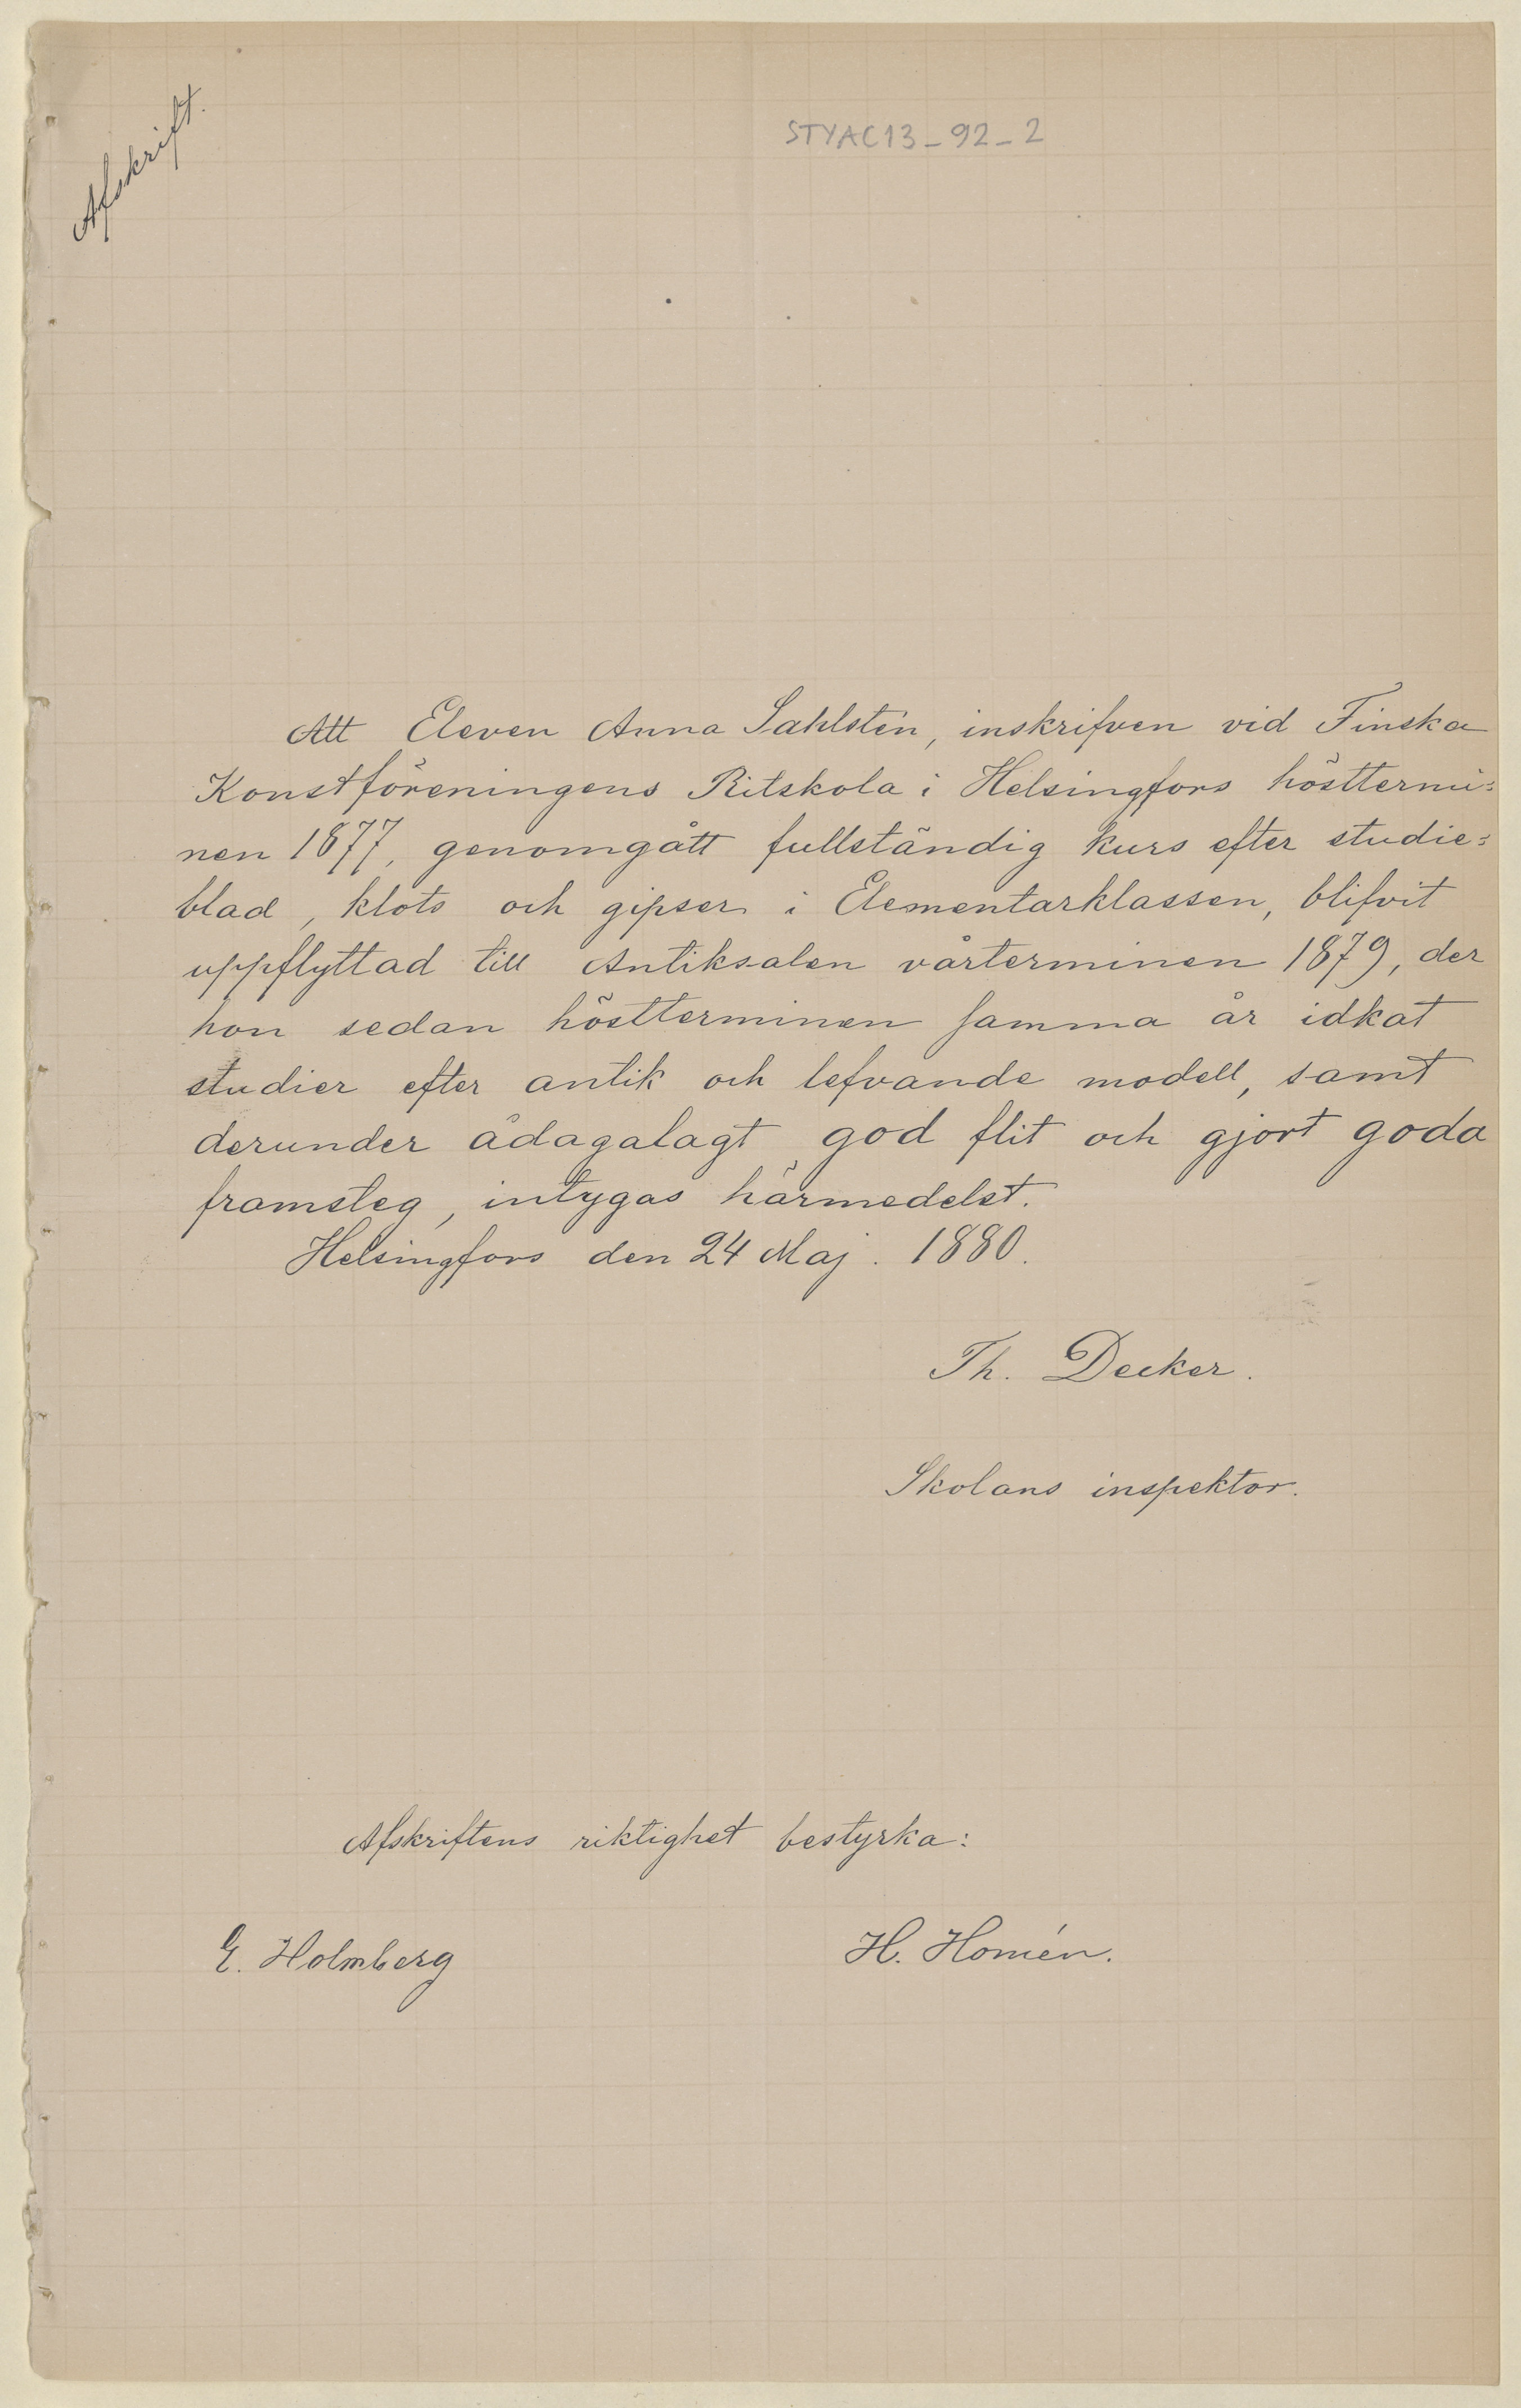 Afskrift.
STYAC13_92_2
Att Eleven Anna Sahlstén, inskrifven vid Finska
Konstföreningens Ritskola i Helsingfors hösttermi=
nen 1877, genomgått fullständig kurs efter studie=
blad, klots och gipser i Elementarklassen, blifvit
uppflyttad till Antiksalen vårterminen 1879, der
hon sedan höstterminen samma år idkat
studier efter antik och lefvande modell, samt
derunder ådagalagt god flit och gjort goda
framsteg, intygas härmedelst.
Helsingfors den 24 Maj. 1880.
Th. Decker.
Skolans inspektor.
Afskriftens riktighet bestyrka:
E. Holmberg
H. Homén.